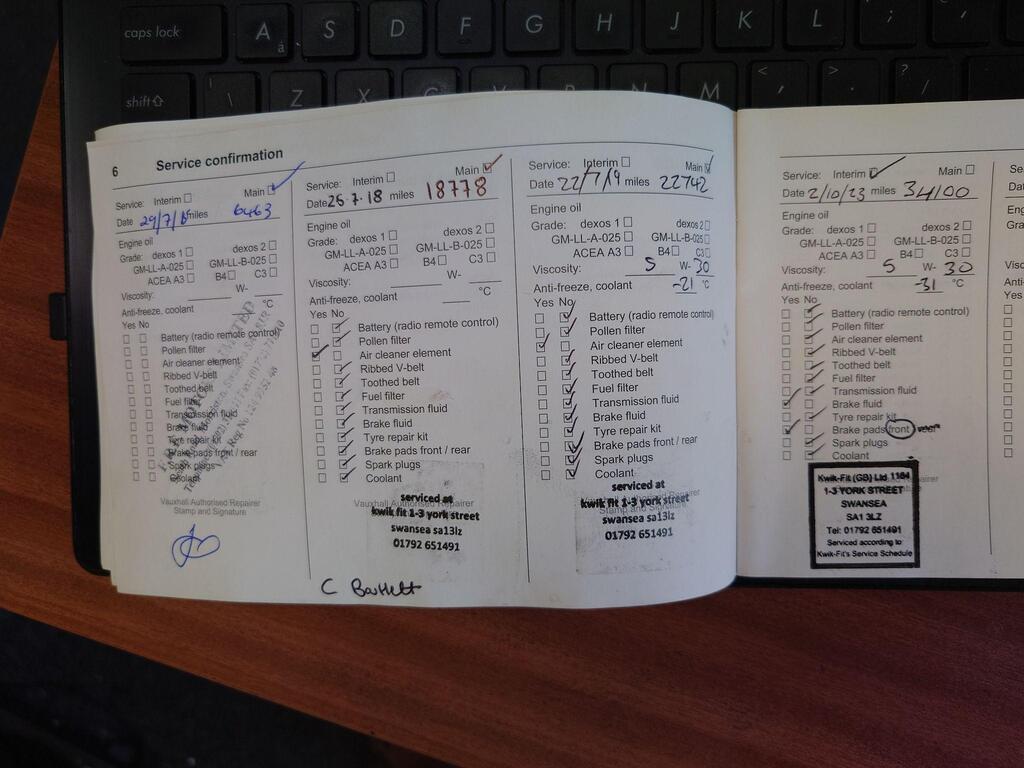 caps lock
A
á
S
D
F
G
H
J
K
L
shift
Z
X
C
M
6 Service confirmation
Service: Interim Main
Date miles 6463
Engine oil
Grade: dexos 1 dexos 2
GM-LL-A-025 GM-LL-B-025
ACEA A3 B4 C3
Viscosity: W-
Anti-freeze, coolant °C
Yes No
Battery (radio remote control)
Pollen filter
Air cleaner element
Ribbed V-belt
Toothed belt
Fuel filter
Transmission fluid
Brake fluid
Tyre repair kit
Brake pads front / rear
Spark plugs
Coolant
Vauxhall Authorised Repairer
Stamp and Signature
Service: Interim Main
Date 25.7.18 miles 18778
Engine oil
Grade: dexos 1 dexos 2
GM-LL-A-025 GM-LL-B-025
ACEA A3 B4 C3
Viscosity: W-
Anti-freeze, coolant °C
Yes No
Battery (radio remote control)
Pollen filter
Air cleaner element
Ribbed V-belt
Toothed belt
Fuel filter
Transmission fluid
Brake fluid
Tyre repair kit
Brake pads front / rear
Spark plugs
Coolant
serviced at
Vauxhall Authorised Repairer
kwik fit 1-3 york street
swansea sa13lz
01792 651491
C Bartlett
Service: Interim Main
Date 22/7/19 miles 22742
Engine oil
Grade: dexos 1 dexos 2
GM-LL-A-025 GM-LL-B-025
ACEA A3 B4 C3
Viscosity: 5 W- 30
Anti-freeze, coolant -21 °C
Yes No
Battery (radio remote control)
Pollen filter
Air cleaner element
Ribbed V-belt
Toothed belt
Fuel filter
Transmission fluid
Brake fluid
Tyre repair kit
Brake pads front / rear
Spark plugs
Coolant
serviced at
Vauxhall Authorised Repairer
kwik fit 1-3 york street
Stamp and Signature
swansea sa13lz
01792 651491
Service: Interim Main
Date 2/10/23 miles 34100
Engine oil
Grade: dexos 1 dexos 2
GM-LL-A-025 GM-LL-B-025
ACEA A3 B4 C3
Viscosity: 5 W- 30
Anti-freeze, coolant -31 °C
Yes No
Battery (radio remote control)
Pollen filter
Air cleaner element
Ribbed V-belt
Toothed belt
Fuel filter
Transmission fluid
Brake fluid
Tyre repair kit
Brake pads front rear
Spark plugs
Coolant
Kwik-Fit (GB) Ltd 1184
1-3 YORK STREET
SWANSEA
SA1 3LZ
Tel: 01792 651491
Serviced according to
Kwik-Fit's Service Schedule